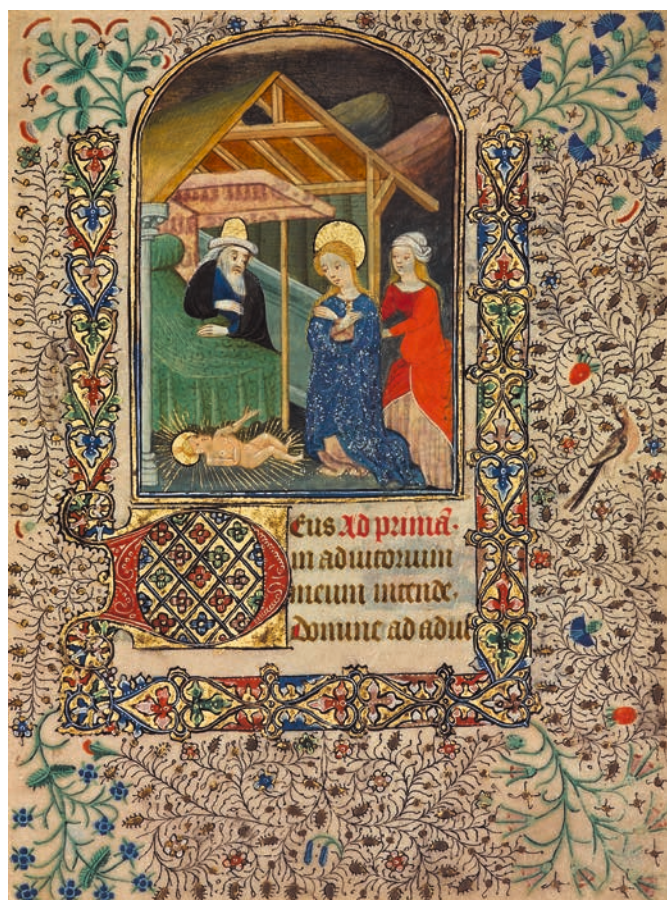 DEus Ad primã.
in adiutorium
meum intende.
Domine ad adiut